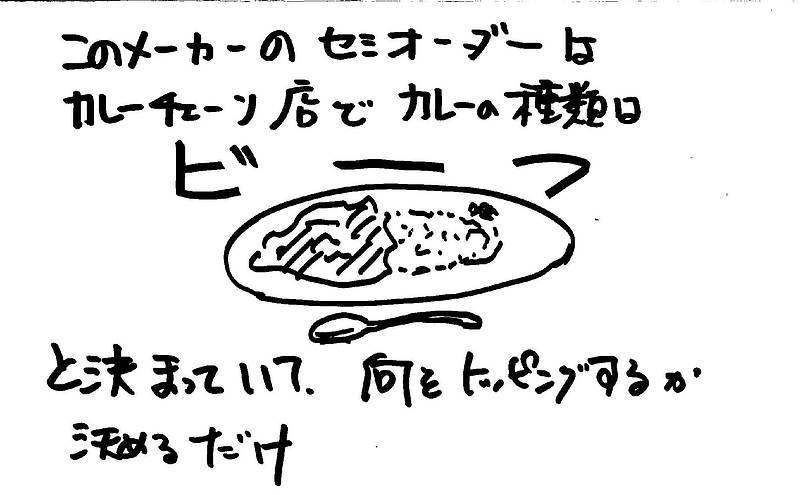 このメーカーの セミオーダーは
カレーチェーン店で カレーの種類は
ビーフ
と決まっていて、何をトッピングするか
決めるだけ